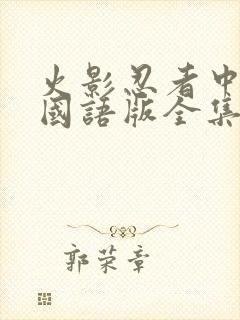 火影忍者中
國語版全集
郭荣章